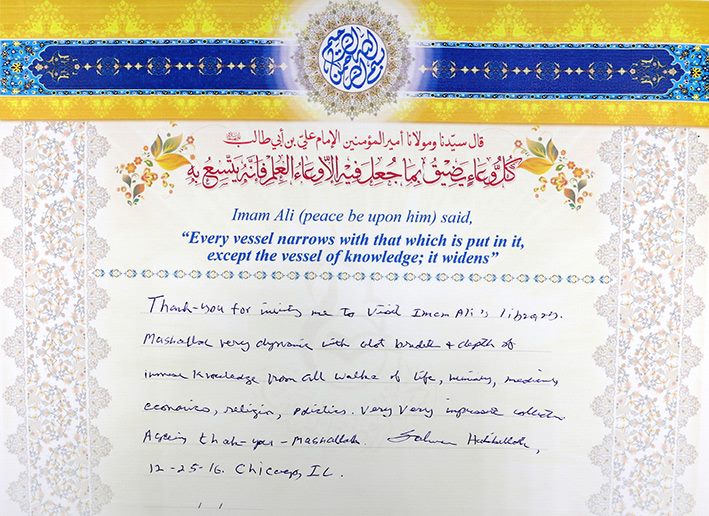 بسم الله الرحمن الرحيم
قال سيّدنا ومولانا أمير المؤمنين الإمام عليّ بن أبي طالب
كُلُّ وِعَاءٍ يَضِيقُ بِمَا جُعِلَ فِيهِ إِلَّا وِعَاءُ الْعِلْمِ فَإِنَّهُ يَتَّسِعُ بِهِ
Imam Ali (peace be upon him) said,
“Every vessel narrows with that which is put in it,
except the vessel of knowledge; it widens”
Thank-you for me to visit Imam Ali's library.
Mashallah very dynamic with alot & depth of
immense knowledge from all walks of life,
economics, religion, politics. Very Very
Again thank-you - Mashallah. Habibullah,
12-25-16. Chicago, IL.